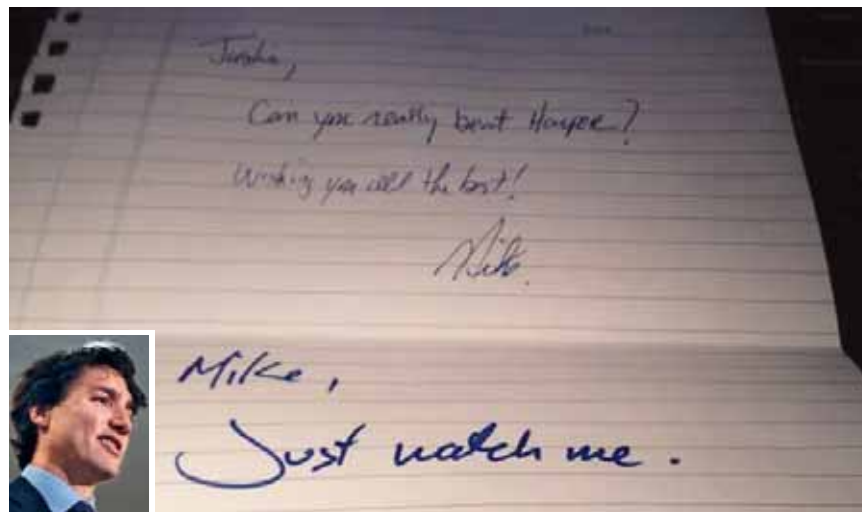 Justin,
Can you really beat Harper?
Wishing you all the best!
Mike.
Mike,
Just watch me.